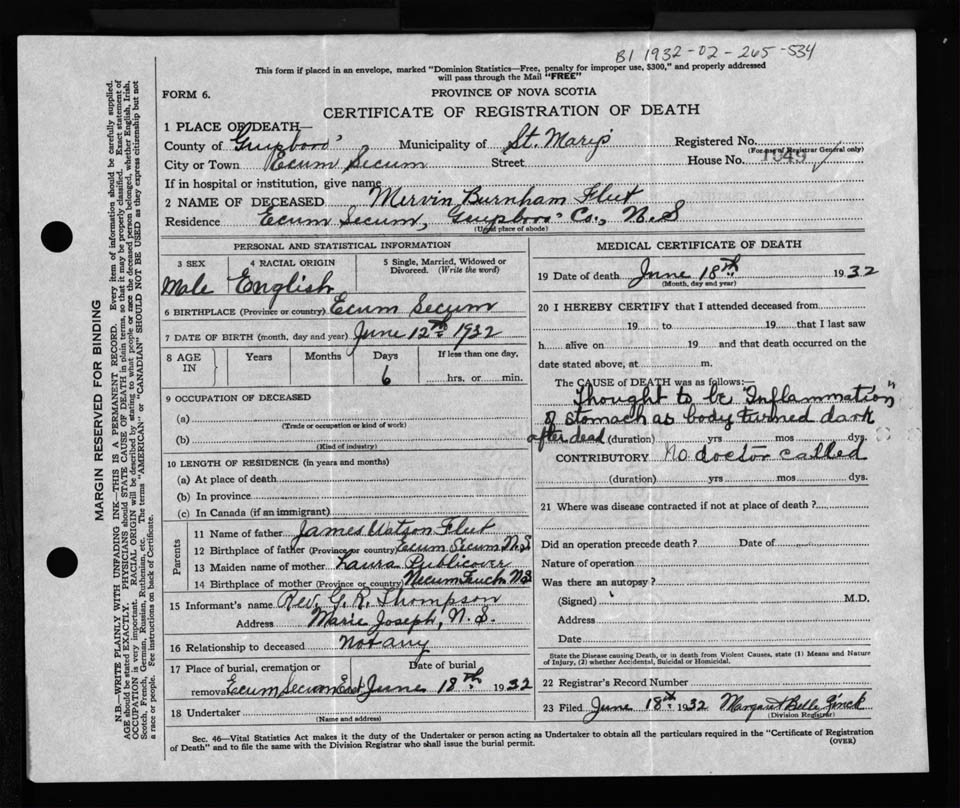 B1 1932-02-265-534
This form if placed in an envelope, marked "Dominion Statistics—Free, penalty for improper use, $300," and properly addressed
will pass through the Mail "FREE"
FORM 6.
PROVINCE OF NOVA SCOTIA
CERTIFICATE OF REGISTRATION OF DEATH
1 PLACE OF DEATH—
County of Guysboro' Municipality of St. Mary's Registered No.
(For use of Registrar General only)
City or Town Ecum Secum Street House No. 1949
If in hospital or institution, give name
2 NAME OF DECEASED Mervin Burnham Fleet
Residence Ecum Secum, Guysboro' Co., N.S
(Usual place of abode)
PERSONAL AND STATISTICAL INFORMATION
3 SEX 4 RACIAL ORIGIN 5 Single, Married, Widowed or
Divorced. (Write the word)
Male English
6 BIRTHPLACE (Province or country) Ecum Secum
7 DATE OF BIRTH (month, day and year) June 12th 1932
8 AGE IN Years Months Days If less than one day,
6 hrs. or min.
9 OCCUPATION OF DECEASED
(a)
(Trade or occupation or kind of work)
(b)
(Kind of industry)
10 LENGTH OF RESIDENCE (in years and months)
(a) At place of death
(b) In province
(c) In Canada (if an immigrant)
Parents
11 Name of father James Watson Fleet
12 Birthplace of father (Province or country) Ecum Secum N.S
13 Maiden name of mother Laura Publicover
14 Birthplace of mother (Province or country) Necum Teuch N.S
15 Informant's name Rev. G. R. Thompson
Address Marie Joseph, N.S.
16 Relationship to deceased Not any
17 Place of burial, cremation or Date of burial
removal Ecum Secum East June 18th 1932
18 Undertaker
(Name and address)
MEDICAL CERTIFICATE OF DEATH
19 Date of death June 18th 1932
(Month, day and year)
20 I HEREBY CERTIFY that I attended deceased from
19 to 19 that I last saw
h alive on 19 and that death occurred on the
date stated above, at m.
The CAUSE of DEATH was as follows:—
Thought to be "Inflammation"
of stomach as body turned dark
after dead (duration) yrs mos dys.
CONTRIBUTORY No doctor called
(duration) yrs mos dys.
21 Where was disease contracted if not at place of death?
Did an operation precede death? Date of
Nature of operation
Was there an autopsy?
(Signed) M.D.
Address
Date
State the Disease causing Death, or in death from Violent Causes, state (1) Means and Nature
of Injury, (2) whether Accidental, Suicidal or Homicidal.
22 Registrar's Record Number
23 Filed June 18th 1932 Margaret Belle
(Division Registrar)
Sec. 46—Vital Statistics Act makes it the duty of the Undertaker or person acting as Undertaker to obtain all the particulars required in the "Certificate of Registration
of Death" and to file the same with the Division Registrar who shall issue the burial permit.
(OVER)
MARGIN RESERVED FOR BINDING
N.B.—WRITE PLAINLY WITH UNFADING INK—THIS IS A PERMANENT RECORD. Every item of information should be carefully supplied.
AGE should be stated EXACTLY. PHYSICIANS should STATE CAUSE OF DEATH in plain terms, so that it may be properly classified. Exact statement of
OCCUPATION is very important. RACIAL ORIGIN will be described by stating to what people or race the deceased person belonged, whether English, Irish,
Scotch, French, German, Russian, Ruthenian, etc. The terms "AMERICAN" or "CANADIAN" SHOULD NOT BE USED as they express citizenship but not
a race or people. See instructions on back of Certificate.